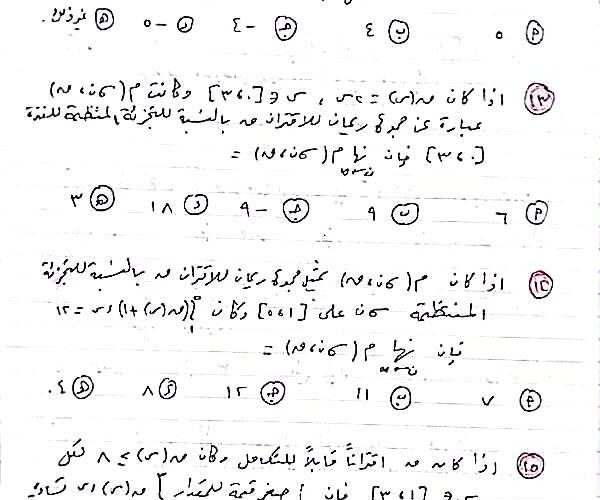 أ ٥ ب ٤ ج -٤ د -٥ هـ غير ذلك.
١٣ اذا كان ق(س) = ٢س ، س ∈ [٣،٠] وكانت م(σن،ق)
عبارة عن مجموع ريمان للاقتران ق بالنسبة للتجزئة المنتظمة للفترة
[٣،٠] فإن نها م(σن،ق) =
ن←∞
أ ٦ ب ٩ ج -٩ د ١٨ هـ ٣
١٤ اذا كان م(σن،ق) تمثل مجموع ريمان للاقتران ق بالنسبة للتجزئة
المنتظمة σن على [٥،١] وكان ∫(ق(س)+١)ءس = ١٢
فإن نها م(σن،ق) =
ن←∞
أ ٧ ب ١١ ج ١٢ د ٨ هـ ٤.
١٥ إذا كان ق اقتراناً قابلاً للتكامل وكان ق(س) ≥ ٨ لكل
س ∈ [٣،١] فإن أصغر قيمة للمقدار ∫ ق(س) ءس تساوي